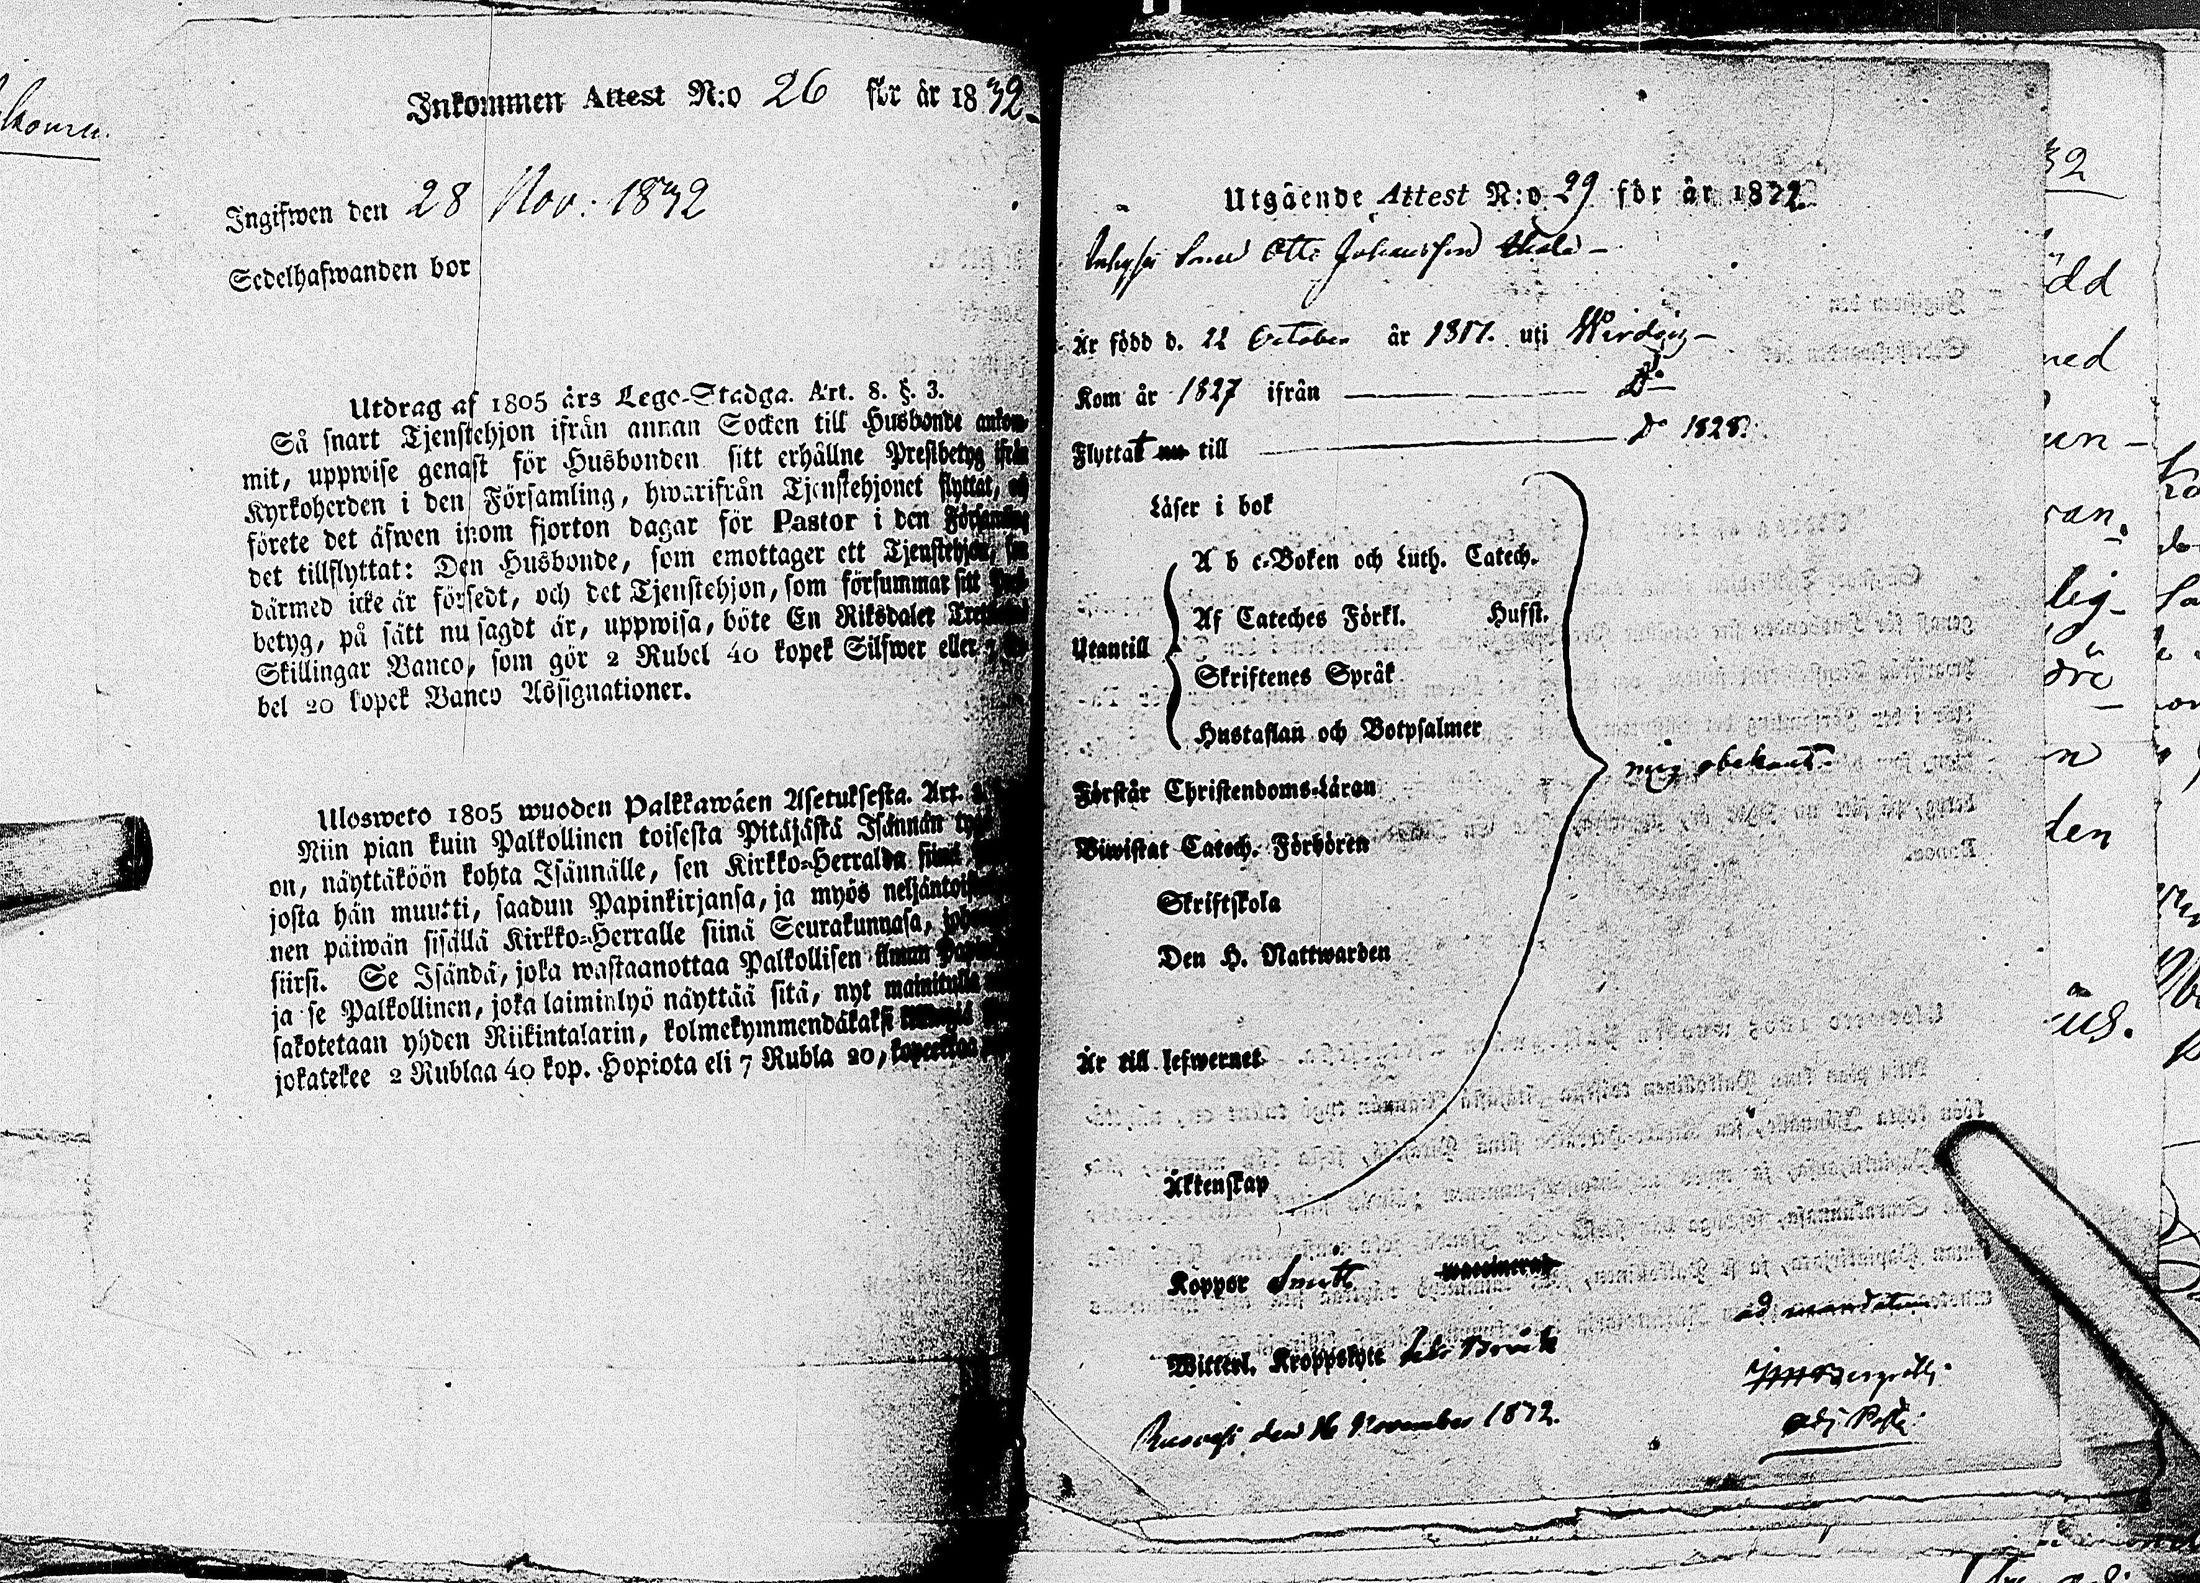 Inkommen Attest N:o 26 för år 1832
Ingifwen den 28 Nov. 1832
Sedelhafwanden bor
Utdrag af 1805 års Lego-Stadga. Art. 8. §. 3.
Så snart Tjenstehjon ifrån annan Socken till Husbonde ankom-
mit, uppwise genast för Husbonden sitt erhållne Prestbetyg ifrån
Kyrkoherden i den Församling, hwarifrån Tjenstehjonet flyttat, och
förete det äfwen inom fjorton dagar för Pastor i den Församling
det tillflyttat: Den Husbonde, som emottager ett Tjenstehjon, som
därmed icke är försedt, och det Tjenstehjon, som försummar sitt
betyg, på sätt nu sagdt är, uppwisa, böte En Riksdaler
Skillingar Banco, som gör 2 Rubel 40 kopek Silfwer eller 7
bel 20 kopek Banco Assignationer.
Ulosweto 1805 wuoden Palkkawäen Asetuksesta. Art.
Niin pian kuin Palkollinen toisesta Pitäjästä Isännän
on, näyttäköön kohta Isännälle, sen Kirkko-Herralda siinä
josta hän muutti, saadun Papinkirjansa, ja myös
nen päiwän sisällä Kirkko-Herralle siinä Seurakunnasa,
siirsi. Se Isändä, joka wastaanottaa Palkollisen ilman
ja se Palkollinen, joka laiminlyö näyttää sitä, nyt mainitulla
sakotetaan yhden Riikintalarin, kolmekymmendäkaksi
jokatekee 2 Rublaa 40 kop. Hopiota eli 7 Rubla 20, kopeekkaa
Utgående Attest N:o 29 för år 1832
Otto Johansson
Är född d. 22 October år 1817. uti
Kom år 1827 ifrån D:o
Flyttat nu till D:o 1828.
Läser i bok
A b c-Boken och Luth. Catech.
Af Cateches Förkl. Husst.
Utantill
Skriftenes Språk
Hustaflan och Botpsalmer
mig obekant.
Förstår Christendoms-Läran
Biwistat Catech. Förhören
Skriftskola
Den H. Nattwarden
Är till lefwernet
Äktenskap
Koppor vaccinerad
ad mandatum
Witterl. Kroppslyte
den 16 November 1832.